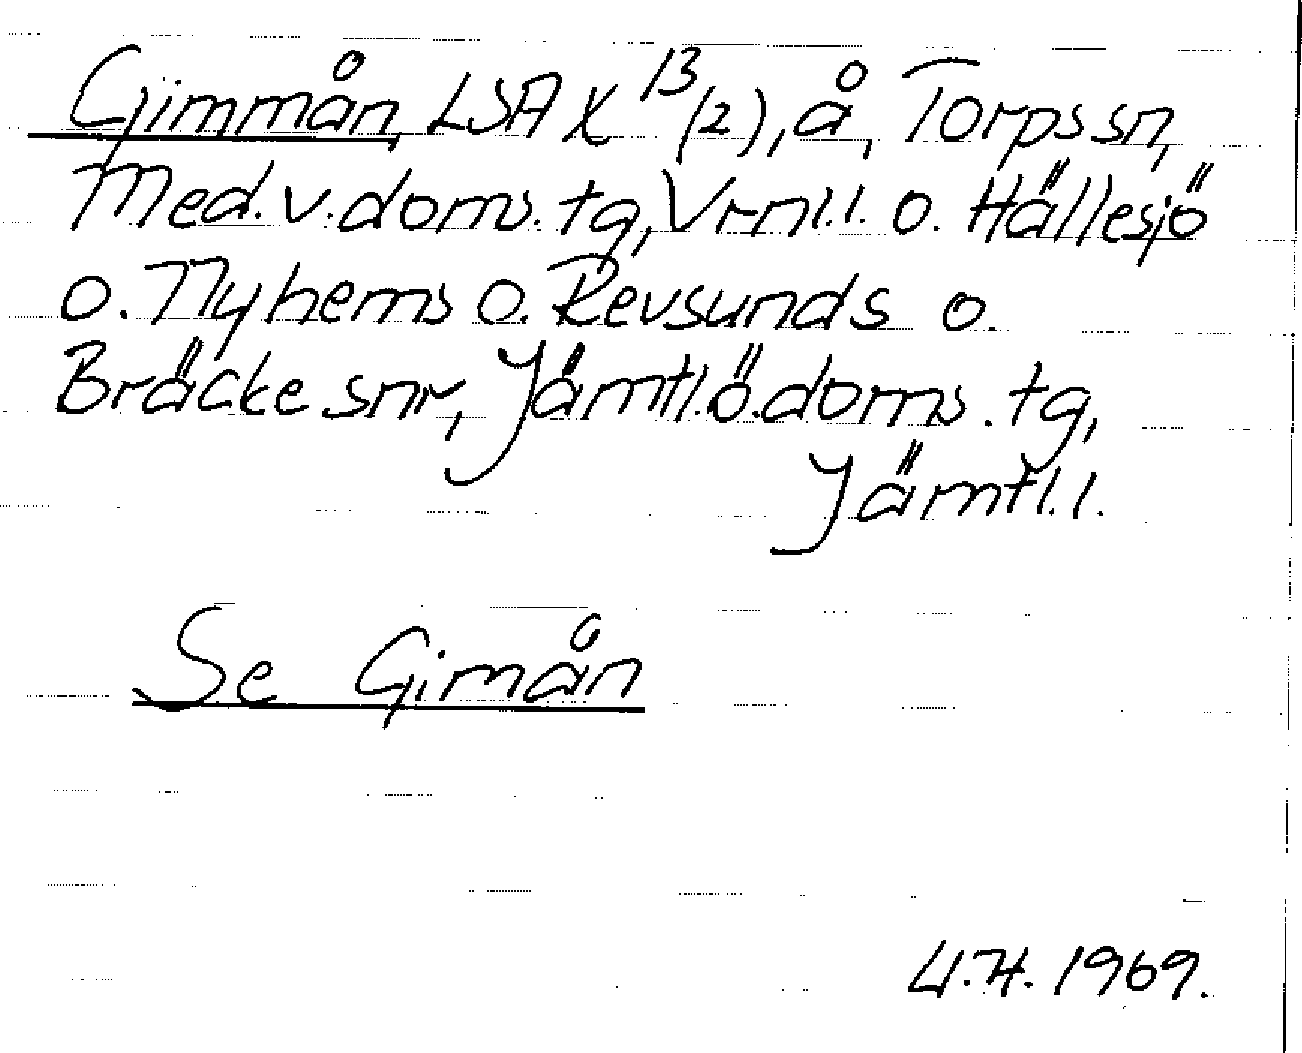 Gimmån, LSA X 13 (2), å, Torps sn,
Med. v. doms. tg, Vrnl. l. o. Hällesjö
o. Nyhems o. Revsunds o.
Bräcke snr, Jämtl. ö. doms. tg,
Jämtl. l.
Se Gimån
1969.